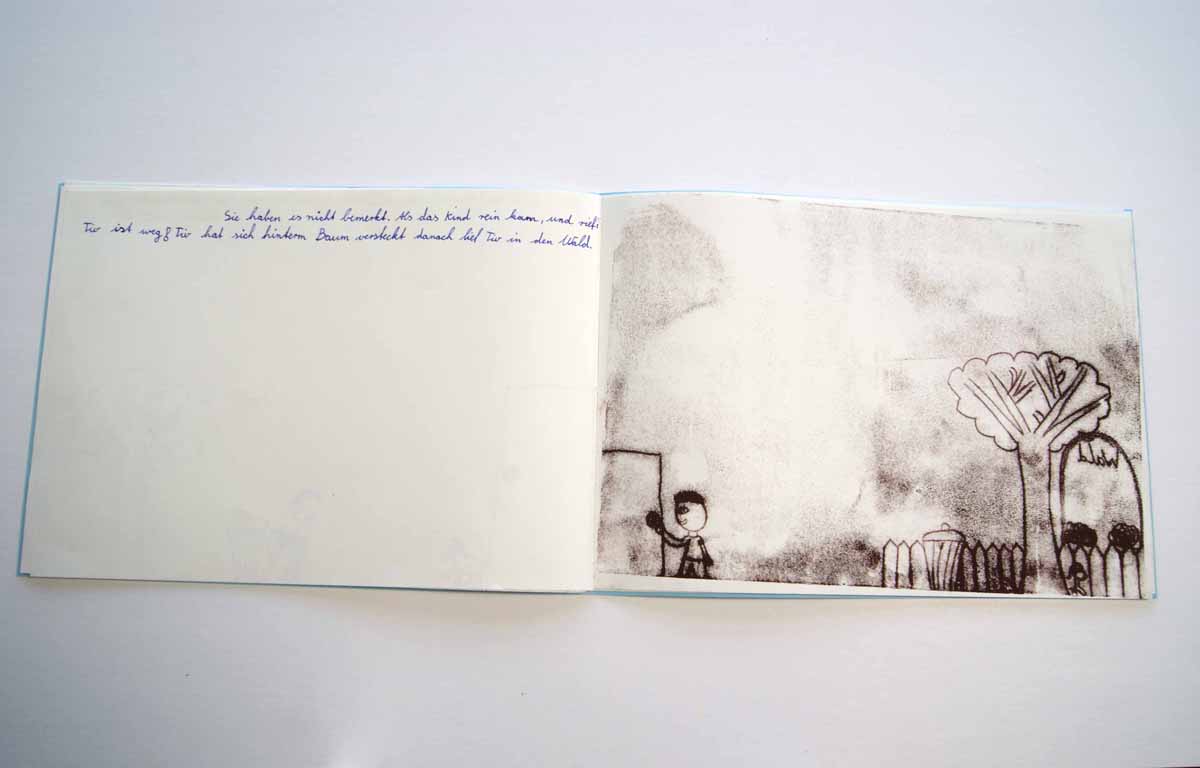 Sie haben es nicht bemerkt. Als das Kind rein kam, und rief:
Tiv ist weg! Tiv hat sich hinterm Baum versteckt danach lief Tiv in den Wald.
Wald